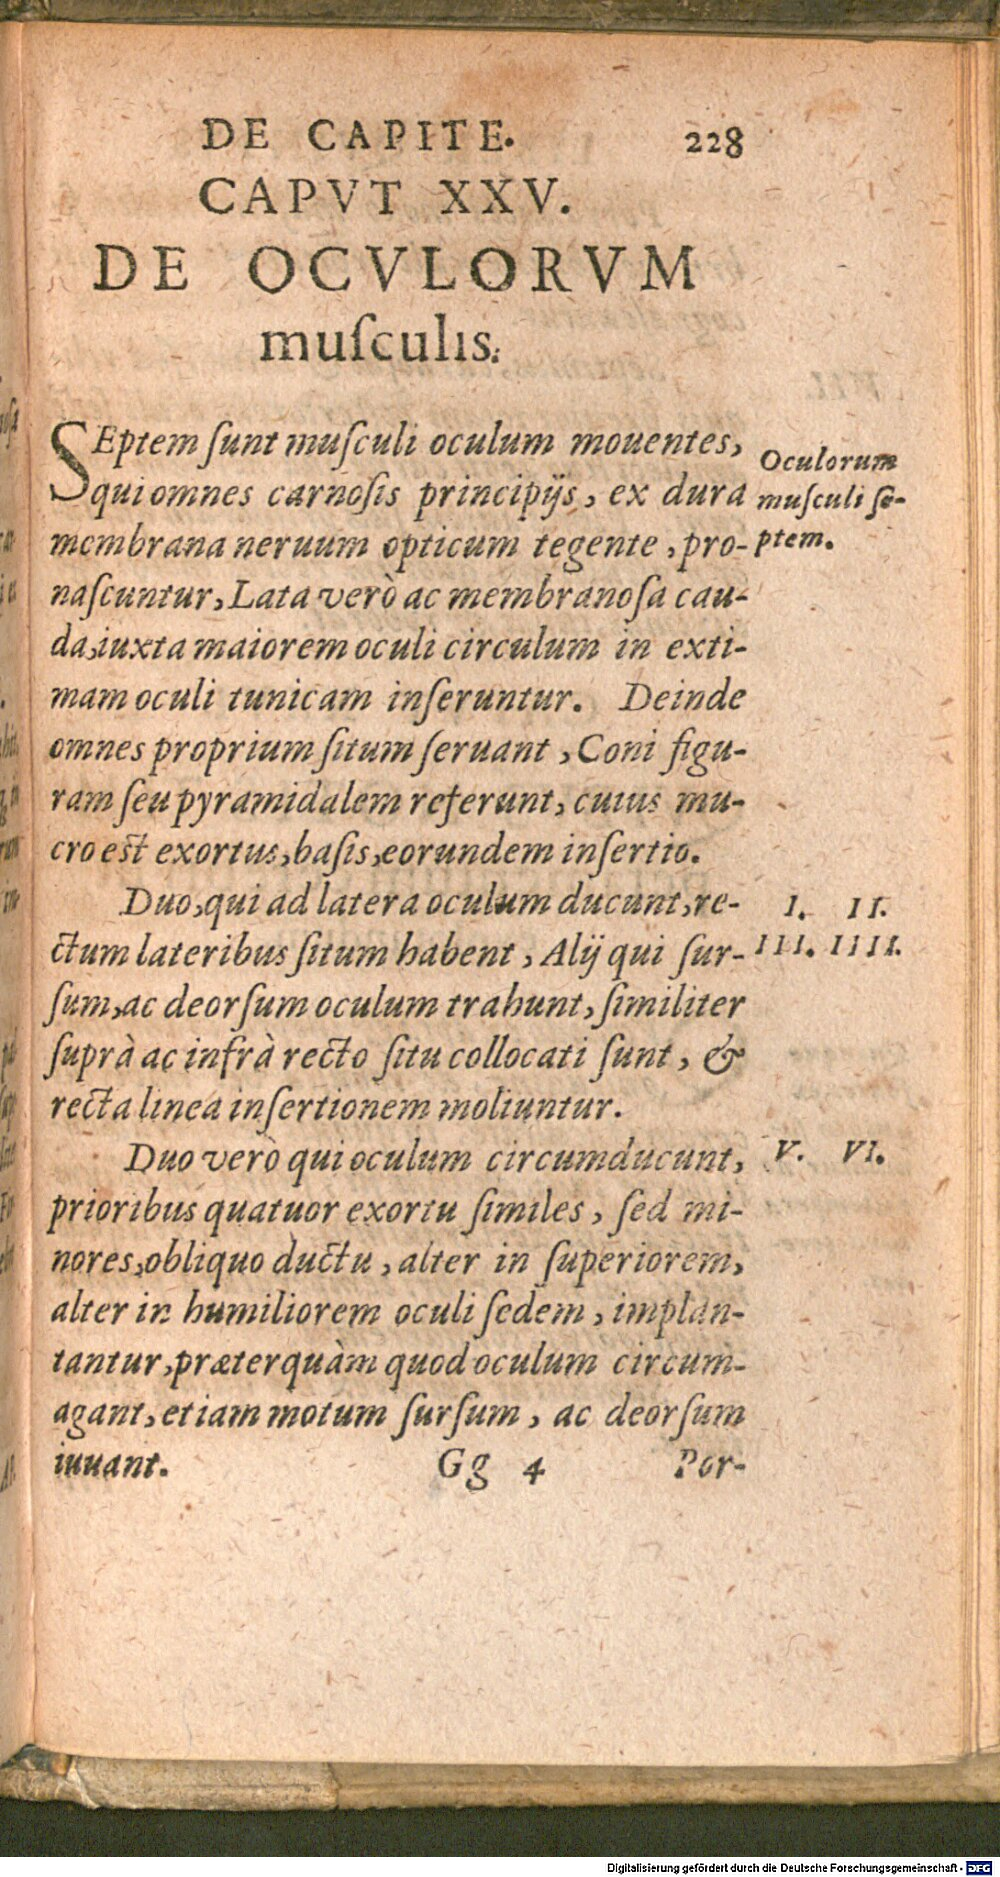 DE CAPITE. 228
CAPVT XXV.
DE OCVLORVM
muſculis.
SEptem ſunt muſculi oculum mouentes,
qui omnes carnoſis principijs, ex dura
membrana neruum opticum tegente, pro-
naſcuntur, Lata verò ac membranoſa cau-
da, iuxta maiorem oculi circulum in exti-
mam oculi tunicam inſeruntur. Deinde
omnes proprium ſitum ſeruant, Coni figu-
ram ſeu pyramidalem referunt, cuius mu-
cro eſt exortus, baſis, eorundem inſertio.
Oculorum
muſculi ſe-
ptem.
Duo, qui ad latera oculum ducunt, re-
ctum lateribus ſitum habent, Alij qui ſur-
ſum, ac deorſum oculum trahunt, ſimiliter
ſuprà ac infrà recto ſitu collocati ſunt, &
recta linea inſertionem moliuntur.
I. II.
III. IIII.
Duo verò qui oculum circumducunt,
prioribus quatuor exortu ſimiles, ſed mi-
nores, obliquo ductu, alter in ſuperiorem,
alter in humiliorem oculi ſedem, implan-
tantur, præterquàm quod oculum circum-
agant, etiam motum ſurſum, ac deorſum
iuuant. Gg 4 Por-
V. VI.
Digitalisierung gefördert durch die Deutsche Forschungsgemeinschaft - DFG